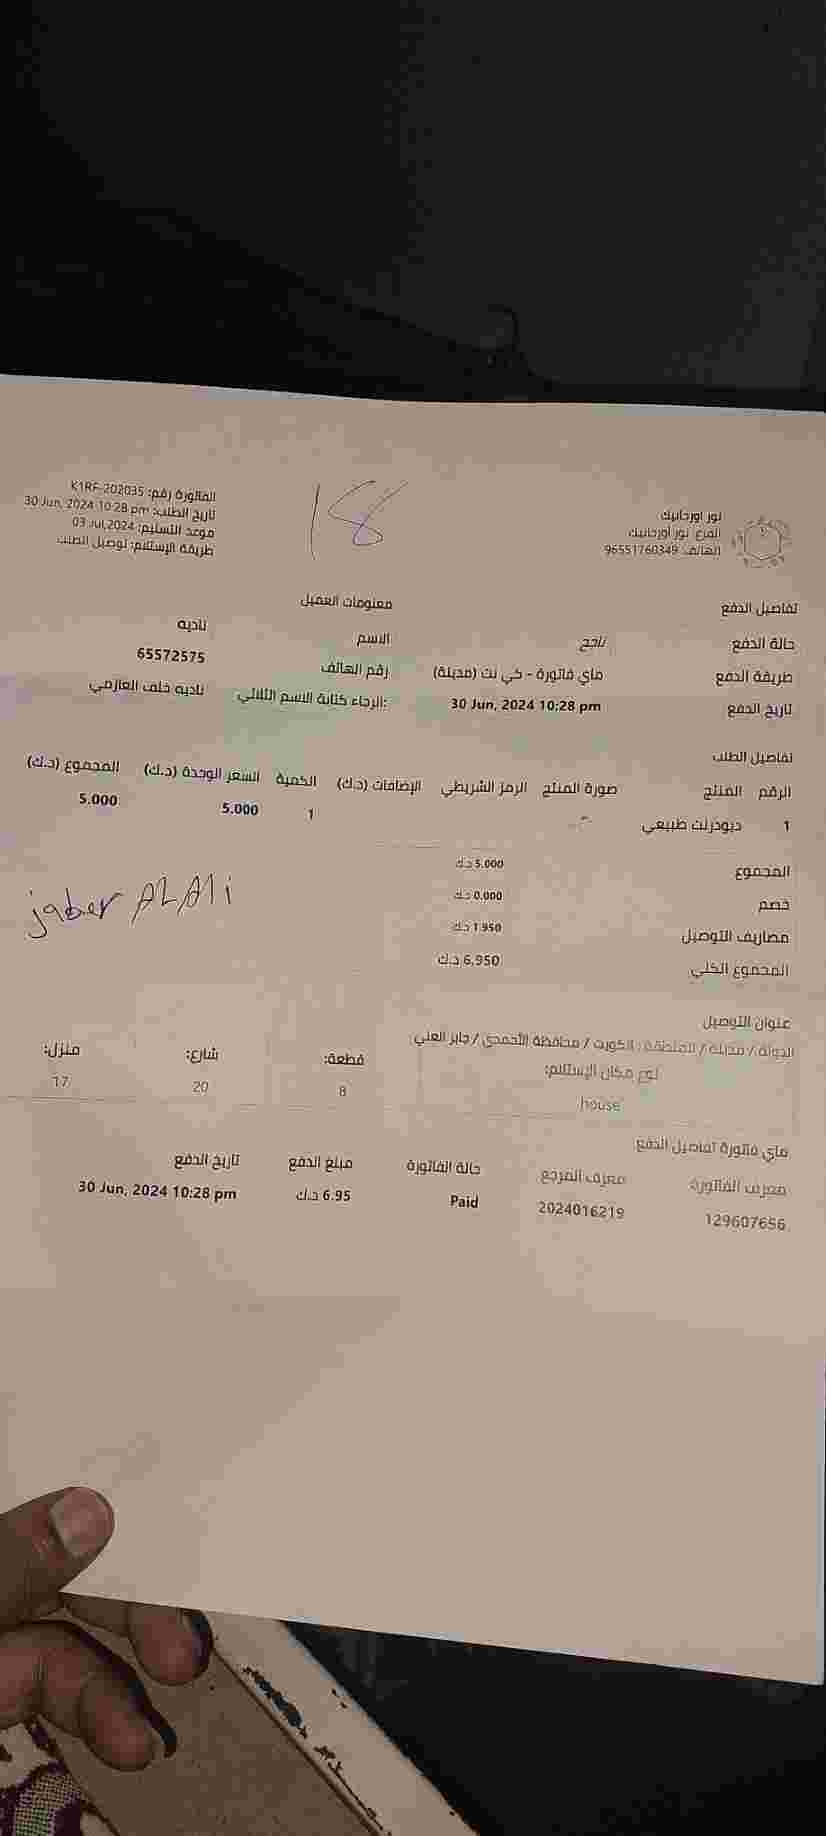 نور اورجانيك
الفرع: نور أورجانيك
الهاتف: 96551760349
18
الفاتورة رقم: K1RF-202035
تاريخ الطلب: 30 Jun, 2024 10:28 pm
موعد التسليم: 03 Jul,2024
طريقة الإستلام: توصيل الطلب
تفاصيل الدفع
حالة الدفع ناجح
طريقة الدفع ماي فاتورة - كي نت (مدينة)
تاريخ الدفع 30 Jun, 2024 10:28 pm
معلومات العميل
الاسم ناديه
رقم الهاتف 65572575
الرجاء كتابة الاسم الثلاثي: ناديه خلف العازمي
تفاصيل الطلب
الرقم المنتج صورة المنتج الرمز الشريطي الإضافات (د.ك) الكمية السعر الوحدة (د.ك) المجموع (د.ك)
1 ديودرنت طبيعي 1 5.000 5.000
المجموع 5.000 د.ك
خصم 0.000 د.ك
مصاريف التوصيل 1.950 د.ك
المجموع الكلي 6.950 د.ك
jaber ALAli
عنوان التوصيل
الدولة / مدينة / المنطقة : الكويت / محافظة الأحمدي / جابر العلي
نوع مكان الإستلام: قطعة: شارع: منزل:
house 8 20 17
ماي فاتورة تفاصيل الدفع
معرف الفاتورة معرف المرجع حالة الفاتورة مبلغ الدفع تاريخ الدفع
129607656 2024016219 Paid 6.95 د.ك 30 Jun, 2024 10:28 pm